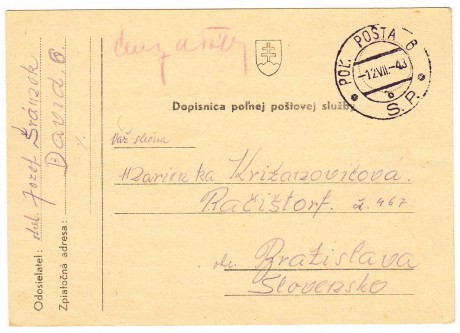 POĽ. POŠTA 6
-12.VII.-43
b
S.P.
Dopisnica poľnej poštovej služby
Važ. slečna
Marienka Križanovičová.
Račištorf. č. 467
Bratislava
Slovensko
Odosielateľ: Jozef Šránzek
Zpiatočná adresa: David. 6.